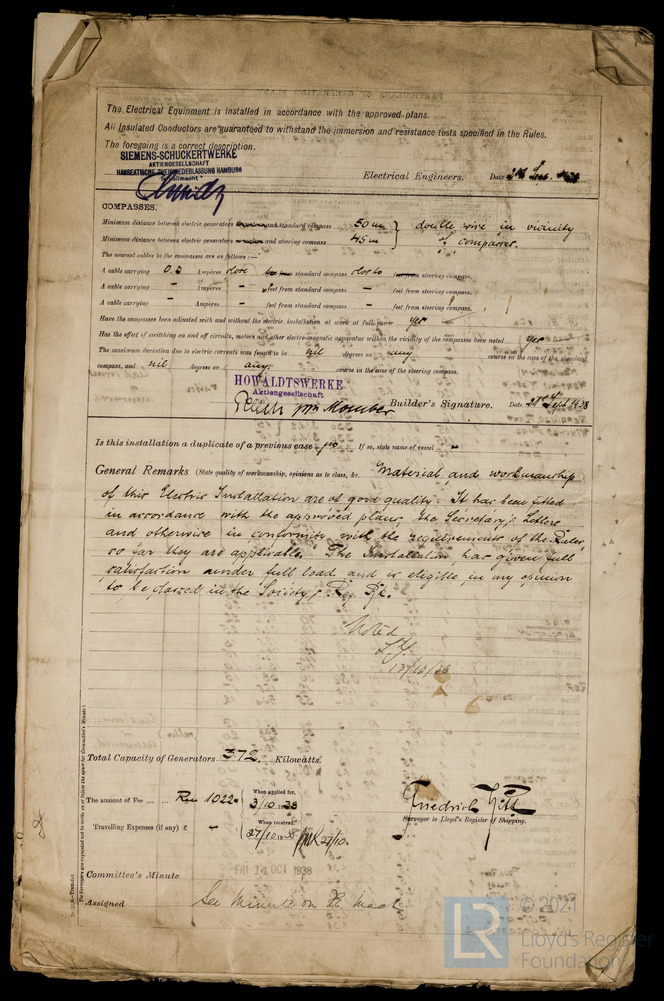 The Electrical Equipment is installed in accordance with the approved plans.
All Insulated Conductors are guaranteed to withstand the immersion and resistance tests specified in the Rules.
The foregoing is a correct description.
SIEMENS-SCHUCKERTWERKE
AKTIENGESELLSCHAFT
HANSEATISCHE ZWEIGNIEDERLASSUNG HAMBURG
Electrical Engineers. Date
COMPASSES.
Minimum distance between electric generators and standard compass 50 m
double wire in vicinity
Minimum distance between electric generators and steering compass 45 m
of compasses.
The nearest cables to the compasses are as follows:—
A cable carrying 0.3 Ampères close standard compass close to steering compass.
A cable carrying - Ampères - feet from standard compass - feet from steering compass.
A cable carrying - Ampères - feet from standard compass - feet from steering compass.
Have the compasses been adjusted with and without the electric installation at work at full power yes
Has the effect of switching on and off circuits, motors and other electro-magnetic apparatus within the vicinity of the compasses been noted yes
The maximum deviation due to electric currents was found to be nil degrees on any course in the case of the standard
compass, and nil degrees on any course in the case of the steering compass.
HOWALDTSWERKE
Aktiengesellschaft
Builder's Signature. Date 28th Sept. 1938
Is this installation a duplicate of a previous case no If so, state name of vessel -
General Remarks (State quality of workmanship, opinions as to class, &c. Material and workmanship
of this Electric Installation are of good quality. It has been fitted
in accordance with the approved plans, the Secretary's Letters
and otherwise in conformity with the requirements of the Rules,
so far they are applicable. The Installation has given full
satisfaction under full load and is eligible in my opinion
to be classed in the Society's Reg. Bk.
Noted
13/10/38
Total Capacity of Generators 372 Kilowatts.
The amount of Fee ... ... Rm 1022.- When applied for, 3/10 1938
When received,
Travelling Expenses (if any) £ - 27/10 1938
Friedrich
Surveyor to Lloyd's Register of Shipping.
Committee's Minute FRI 14 OCT 1938
Assigned See Minute on
© 2021
LR
Lloyd's Register
Foundation